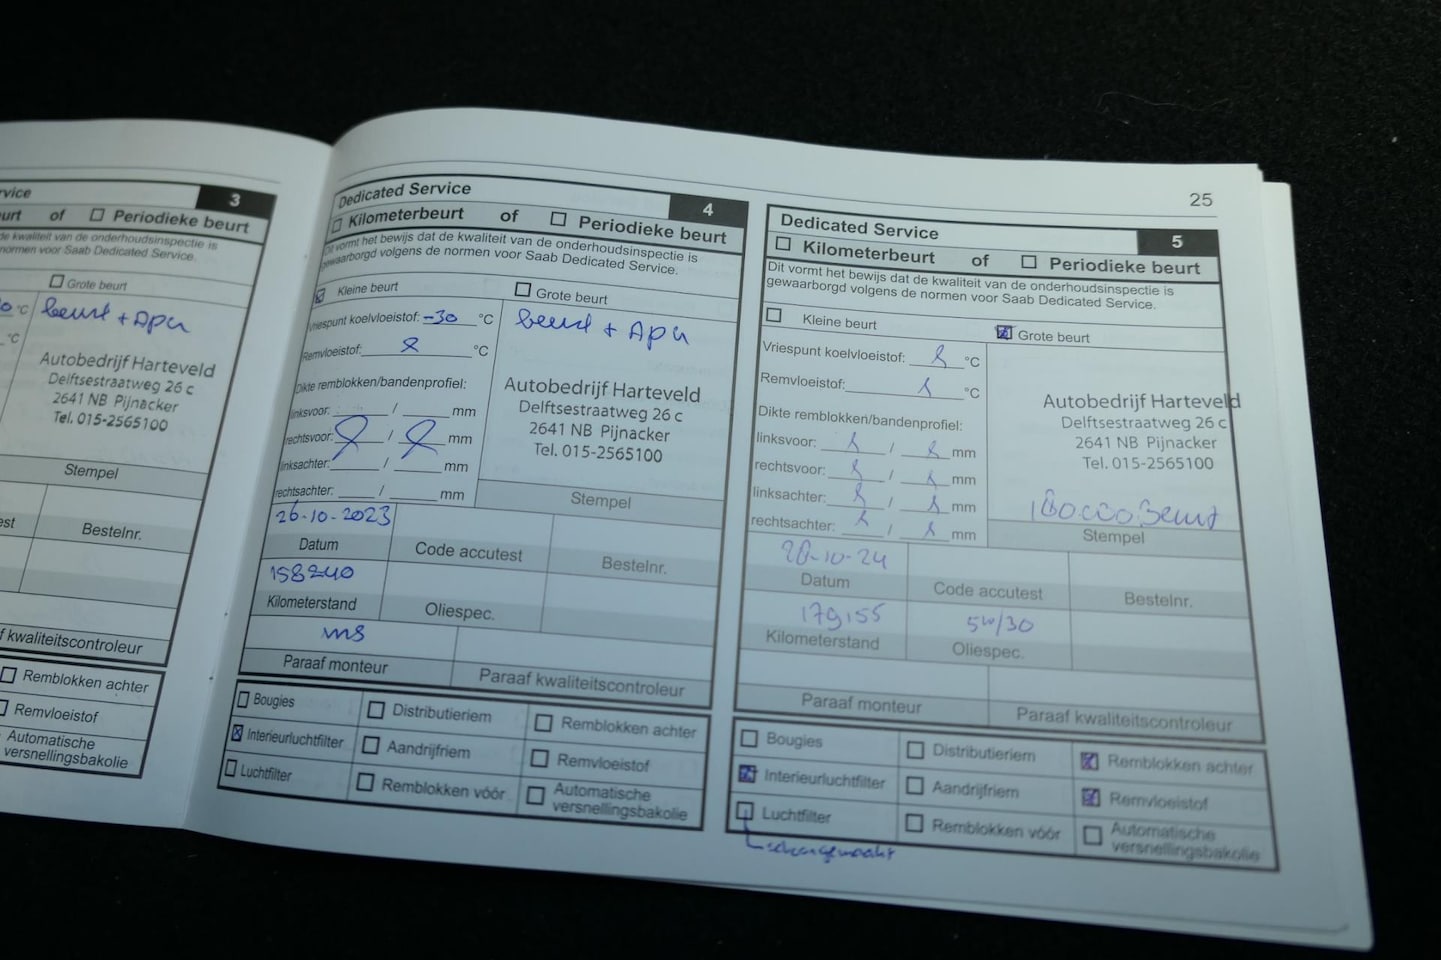 rvice
3
urt of Periodieke beurt
de kwaliteit van de onderhoudsinspectie is
normen voor Saab Dedicated Service.
Grote beurt
°C beurt + APK
°C
Autobedrijf Harteveld
Delftsestraatweg 26 c
2641 NB Pijnacker
Tel. 015-2565100
Stempel
est Bestelnr.
f kwaliteitscontroleur
Remblokken achter
Remvloeistof
Automatische
versnellingsbakolie
Dedicated Service
4
Kilometerbeurt of Periodieke beurt
Dit vormt het bewijs dat de kwaliteit van de onderhoudsinspectie is
gewaarborgd volgens de normen voor Saab Dedicated Service.
Kleine beurt Grote beurt
Vriespunt koelvloeistof: -30 °C beurt + APK
Remvloeistof: °C
Dikte remblokken/bandenprofiel:
linksvoor: / mm
rechtsvoor: / mm
linksachter: / mm
rechtsachter: / mm
Autobedrijf Harteveld
Delftsestraatweg 26 c
2641 NB Pijnacker
Tel. 015-2565100
Stempel
26-10-2023
Datum Code accutest Bestelnr.
158240
Kilometerstand Oliespec.
ms
Paraaf monteur Paraaf kwaliteitscontroleur
Bougies Distributieriem Remblokken achter
Interieurluchtfilter Aandrijfriem Remvloeistof
Luchtfilter Remblokken vóór Automatische
versnellingsbakolie
25
Dedicated Service
5
Kilometerbeurt of Periodieke beurt
Dit vormt het bewijs dat de kwaliteit van de onderhoudsinspectie is
gewaarborgd volgens de normen voor Saab Dedicated Service.
Kleine beurt Grote beurt
Vriespunt koelvloeistof: °C
Remvloeistof: °C
Dikte remblokken/bandenprofiel:
linksvoor: / mm
rechtsvoor: / mm
linksachter: / mm
rechtsachter: / mm
Autobedrijf Harteveld
Delftsestraatweg 26 c
2641 NB Pijnacker
Tel. 015-2565100
180.000 Beurt
Stempel
28-10-24
Datum Code accutest Bestelnr.
179155 5w/30
Kilometerstand Oliespec.
Paraaf monteur Paraaf kwaliteitscontroleur
Bougies Distributieriem Remblokken achter
Interieurluchtfilter Aandrijfriem Remvloeistof
Luchtfilter Remblokken vóór Automatische
versnellingsbakolie
schoongemaakt